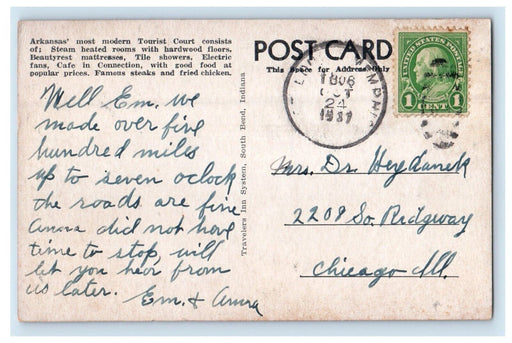 Arkansas' most modern Tourist Court consists
of; Steam heated rooms with hardwood floors,
Beautyrest mattresses, Tile showers, Electric
fans, Cafe in Connection, with good food at
popular prices. Famous steaks and fried chicken.
Well Em. we
made over five
hundred miles
up to seven oclock
the roads are fine
Anna did not have
time to stop, will
let you hear from
us later.
Em. & Anna
Travelers Inn System, South Bend, Indiana
POST CARD
This Space for Address Only
OCT
24
1937
UNITED STATES POSTAGE
1 CENT 1
Mrs. Dr. Heydanek
2208 So. Ridgway
Chicago Ill.